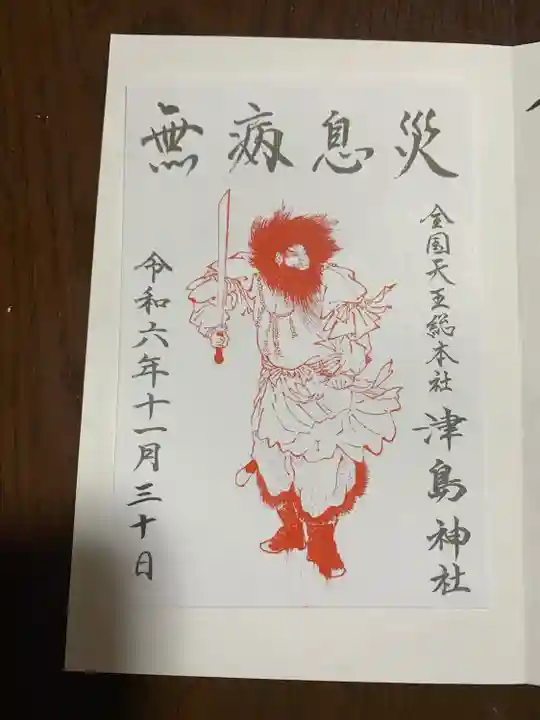 無病息災
全国天王総本社 津島神社
令和六年十一月三十日